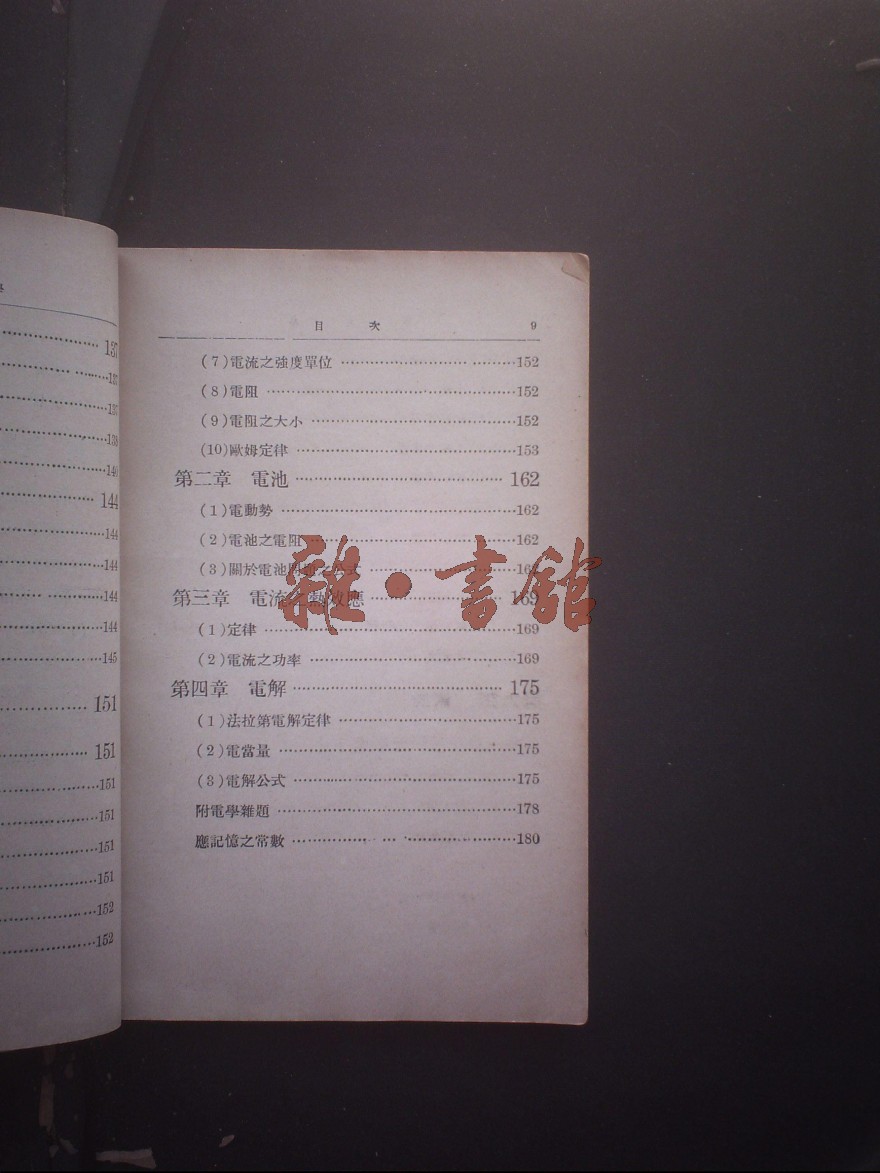 137
137
137
138
140
144
144
144
144
144
145
151
151
151
151
151
151
152
152
目 次 9
(7)電流之強度單位 152
(8)電阻 152
(9)電阻之大小 152
(10)歐姆定律 153
第二章 電池 162
(1)電動勢 162
(2)電池之電阻 162
(3)關於電池問題之公式
第三章 電流之熱效應 169
(1)定律 169
(2)電流之功率 169
第四章 電解 175
(1)法拉第電解定律 175
(2)電當量 175
(3)電解公式 175
附電學雜題 178
應記憶之常數 180
雜·書館